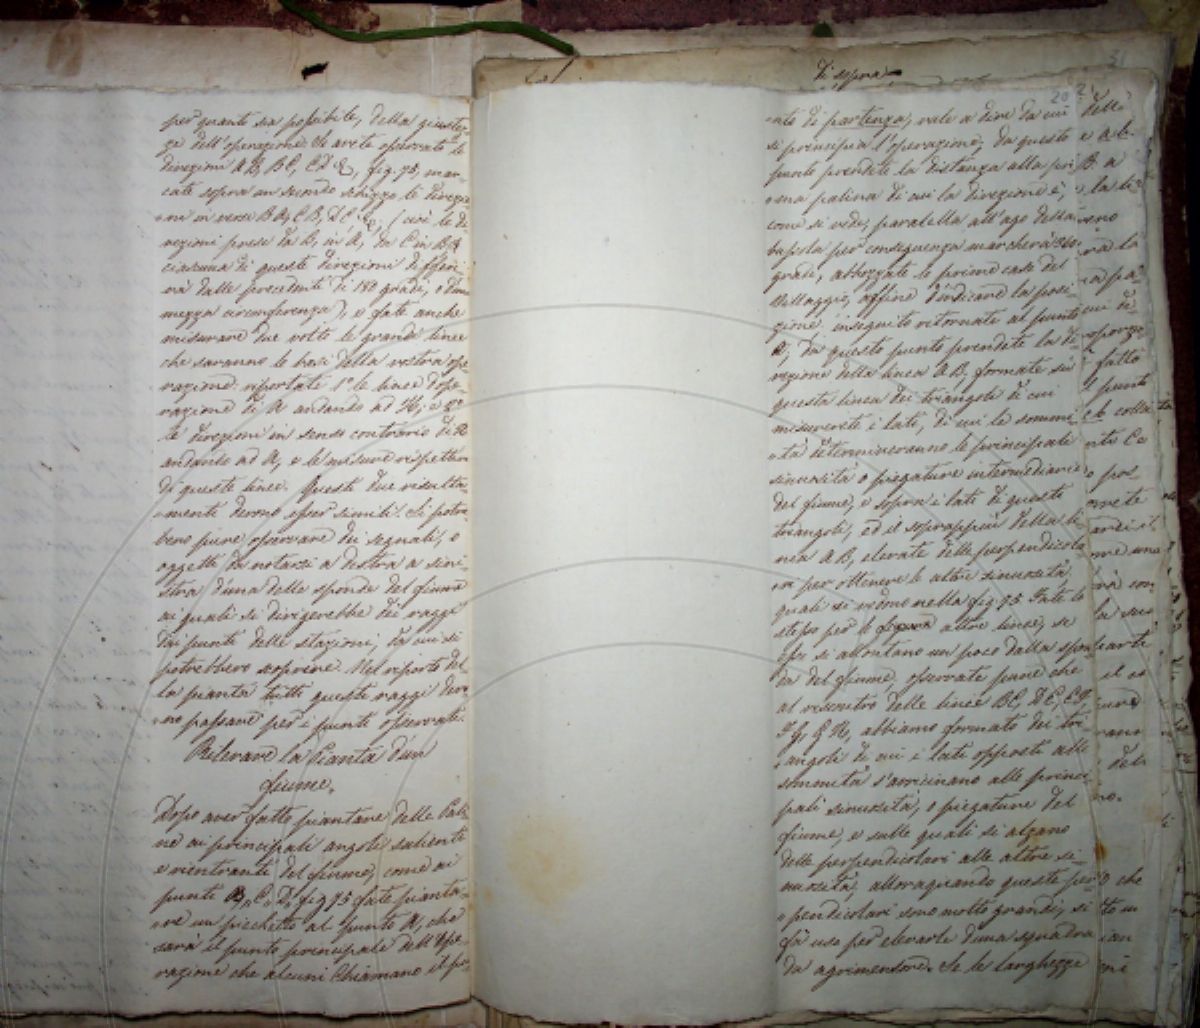 per quanto sia possibile, della giustez-
ze dell'operazione. Se avete osservato le
direzioni AB, BC, CD &, fig. 75, mar-
cate sopra un secondo schizzo le direzio-
ni in verse BA, CB, DC &, (cioè le di
rezioni prese da B, in A, da C in B)
ciascuna di queste direzioni differi
rà dalle precedenti di 180 gradi, o d'una
mezza circonferenza), e fate anche
misurare due volte le grandi linee
che saranno le basi della vostra ope
razione. riportate 1° le linee d'ope-
razione di A andando ad H, e 2°
le direzioni in senso contrario di H
andando ad A, e le misure rispettive
di queste linee. Queste due risulta-
menti devono esser simili. Si potre-
bero pure osservare dei segnali, o
oggetti da notarsi a destra a sini-
stra d'una delle sponde del fiume
ai quali si dirigerebbe dei raggi
dai punti delle stazioni, da cui si
potrebbero scoprire. Nel riporto del
la pianta tutti questi raggi devo
no passare per i punti osservati.
Rilevare la Pianta d'un
fiume.
Dopo aver fatto piantare delle Pali-
ne ai principali angoli salienti
e rientranti del fiume, come ai
punti B, C, D, fig 75 fate pianta-
re un picchetto al punto A, che
sarà il punto principale dell'ope-
razione che alcuni chiamano il pu-
di sopra
20
nto di partenza, vale a dire da cui
si principia l'operazione, da questo
punto prendete la distanza alla pri
ma palina di cui la direzione è,
come si vede, paralella all'ago della
bussola per conseguenza marcherà 360
gradi, abbozzate le prime case del
Villaggio, affine d'indicare la posi-
zione. inseguito ritornate al punto
A, da questo punto prendete la di
rezione della linea AB, formate su
questa linea dei triangoli di cui
misurerete i lati, di cui le sommi
tà determineranno le principali
sinuosità o piegature intermediarie
del fiume, e sopra i lati di questi
triangoli, ed il soprappiù della li
nea AB, elevate delle perpendicola
ri per ottenere le altre sinuosità
quali si vedono nella fig 75. Fate lo
stesso per le altre linee, se
essi si allontano un poco dalla spon
da del fiume, osservate pure che
al riscontro delle linee BC, DE, EF,
FG, GH, abbiamo formato dei tri-
angoli di cui i lati opposti alle
sommità s'avvicinano alle princi
pali sinuosità, o piegature del
fiume, e sulle quali si alzano
delle perpendicolari alle altre si-
nuosità, alloraquando queste per
pendicolari sono molto grandi, si
fà uso per elevarle d'una squadra
da agrimensore. Se le larghezze